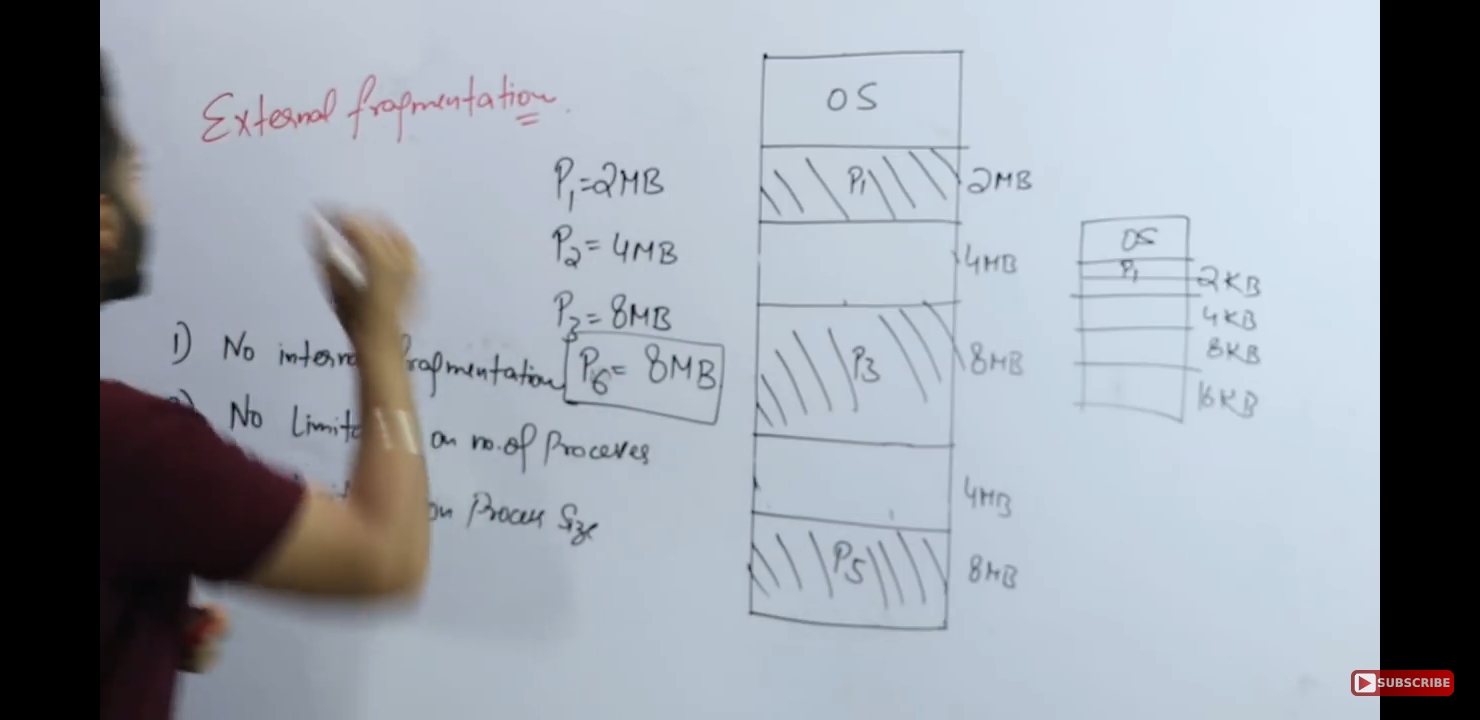 External fragmentation
P1=2MB
P2=4MB
P3=8MB
P6=8MB
1) No fragmentation
No on no. of Processes
on Process Size
OS
P1 2MB
4MB
P3 8MB
4MB
P5 8MB
OS
P1 2KB
4KB
8KB
16KB
SUBSCRIBE